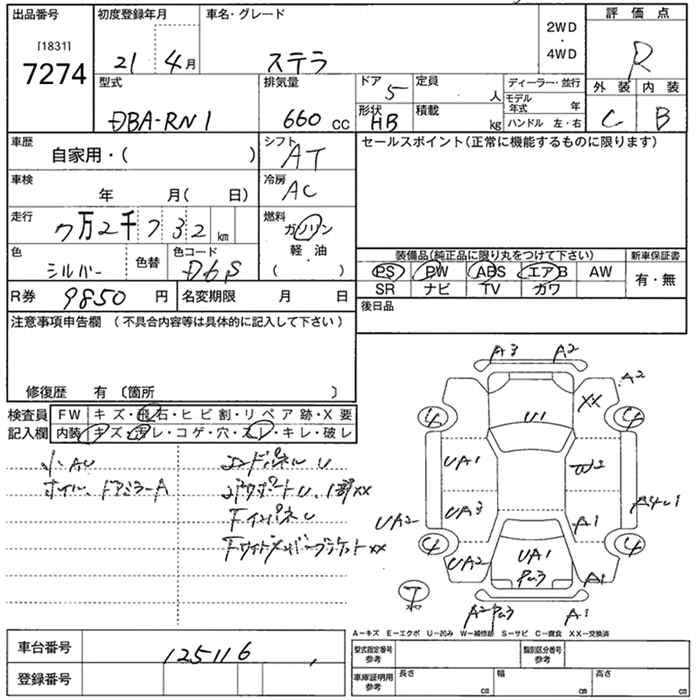 出品番号 初度登録年月 車名・グレード 2WD・4WD 評価点
[1831] 7274 21 4月 ステラ R
型式 排気量 ドア 5 定員 人 ディーラー・並行 外装 内装
DBA-RN1 660 cc 形状 HB 積載 kg モデル年式 年 ハンドル 左・右 C B
車歴 自家用・( ) シフト AT セールスポイント(正常に機能するものに限ります)
車検 年 月( 日) 冷房 AC
走行 7万2千732 km 燃料 ガソリン 軽・油 ( )
色 シルバー 色替 色コード D6S
装備品(純正品に限り丸をつけて下さい) 新車保証書
PS PW ABS エアB AW 有・無
SR ナビ TV カワ
R券 9850円 名変期限 月 日 後日品
注意事項申告欄 (不具合内容等は具体的に記入して下さい)
修復歴 有 〔箇所 〕
検査員 FW キズ・飛石・ヒビ割・リペア跡・X要
記入欄 内装 キズ・汚レ・コゲ・穴・スレ・キレ・破レ
小AU
ホイル、ドアミラーA
コアサポートU、1部XX
FインパネU
Fサイドメンバーブラケットxx
A3 A2
A2
XX
U1
UA1 W2
UA3 A4U1
UA2 A1
UA2 UA1 A1
4 4 4 4
A2 A1
A-キズ E-エクボ U-凹み W-補修跡 S-サビ C-腐食 XX-交換済
車台番号 125116
登録番号
型式指定番号 参考 類別区分番号 参考
車庫証明用 参考 長さ cm 幅 cm 高さ cm